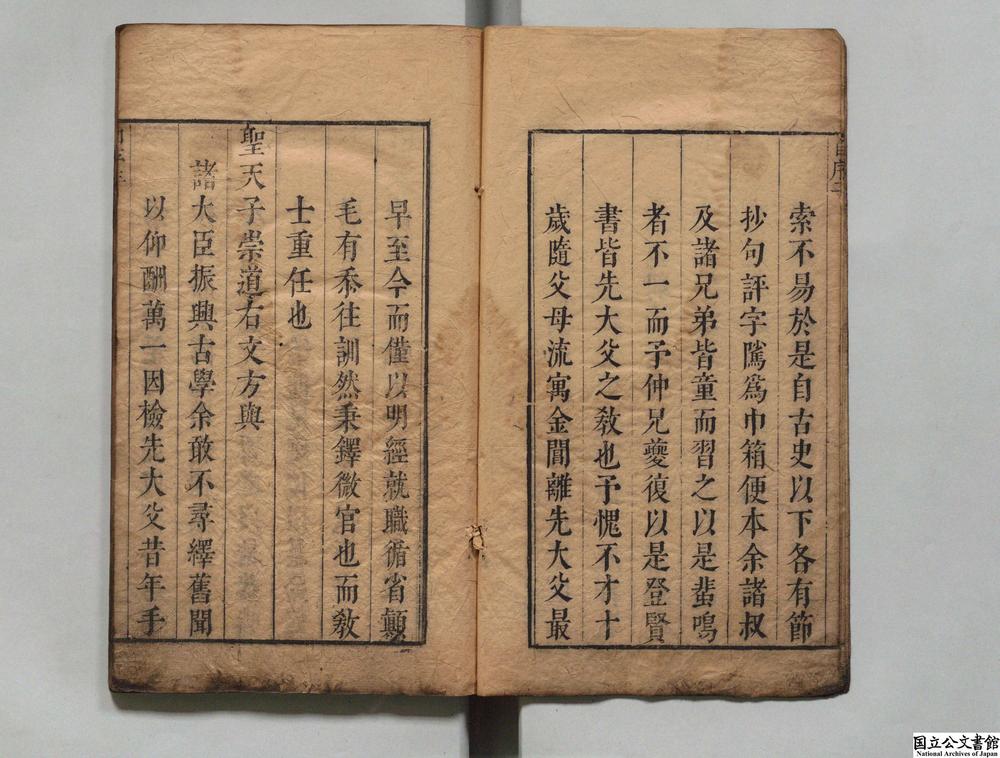 索不易於是自古史以下各有節
抄句評字隲爲巾箱便本余諸叔
及諸兄弟皆童而習之以是蜚鳴
者不一而予仲兄夔復以是登賢
書皆先大父之敎也予愧不才十
歲隨父母流寓金閶離先大父最
早至今而僅以明經就職循省顛
毛有忝往訓然秉鐸微官也而敎
士重任也
聖天子崇道右文方與
諸大臣振興古學余敢不尋繹舊聞
以仰酬萬一因檢先大父昔年手
国立公文書館
National Archives of Japan